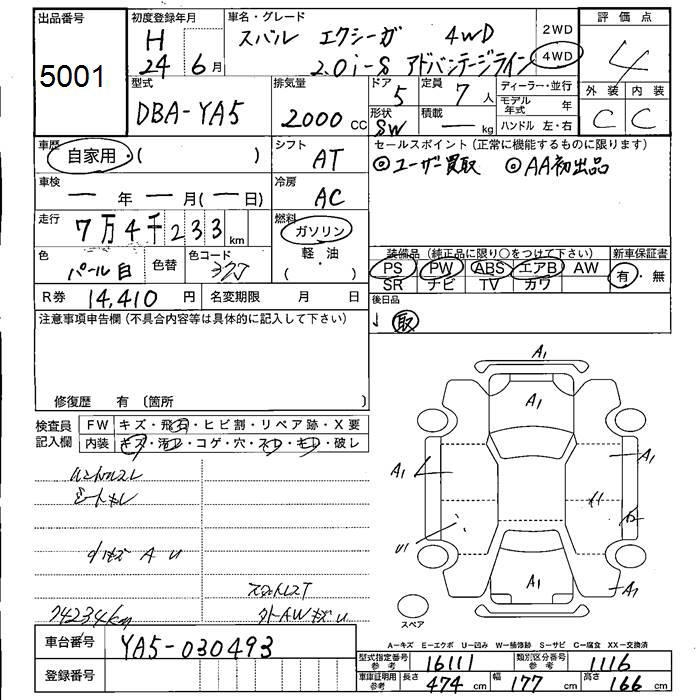 出品番号
5001
初度登録年月
H
24 6月
車名・グレード
スバル エクシーガ 4WD
2.0i-S アドバンテージライン
2WD
4WD
評価点
4
外装 内装
C C
型式
DBA-YA5
排気量
2000 CC
ドア 5
定員 7人
形状 SW
積載 ー kg
ディーラー・並行
モデル年式 年
ハンドル 左・右
車歴
自家用・( )
シフト
AT
車検
ー年ー月(ー日)
冷房
AC
走行
7万4千233km
燃料
ガソリン
軽・油
( )
色
パール白
色替
色コード
37J
R券 14,410円
名変期限 月 日
セールスポイント(正常に機能するものに限ります)
◎ユーザー買取 ◎AA初出品
装備品(純正品に限り○をつけて下さい)
PS PW ABS エアB AW
SR ナビ TV カワ
新車保証書
有・無
後日品
取
注意事項申告欄(不具合内容等は具体的に記入して下さい)
修復歴 有〔箇所
検査員記入欄
FW キズ・飛石・ヒビ割・リペア跡・X要
内装 キズ・汚レ・コゲ・穴・スレ・モレ・破レ
ハンドルスレ
シートキレ
小キズ A U
74234km
外AWキズU
A1
A1
A1
A1
A1
A1
U1
スペア
A−キズ E−エクボ U−凹み W−補修跡 S−サビ C−腐食 XX−交換済
車台番号
YA5-030493
登録番号
型式指定番号参考 16111
類別区分番号参考 1116
車庫証明用参考 長さ 474cm 幅 177cm 高さ 166cm